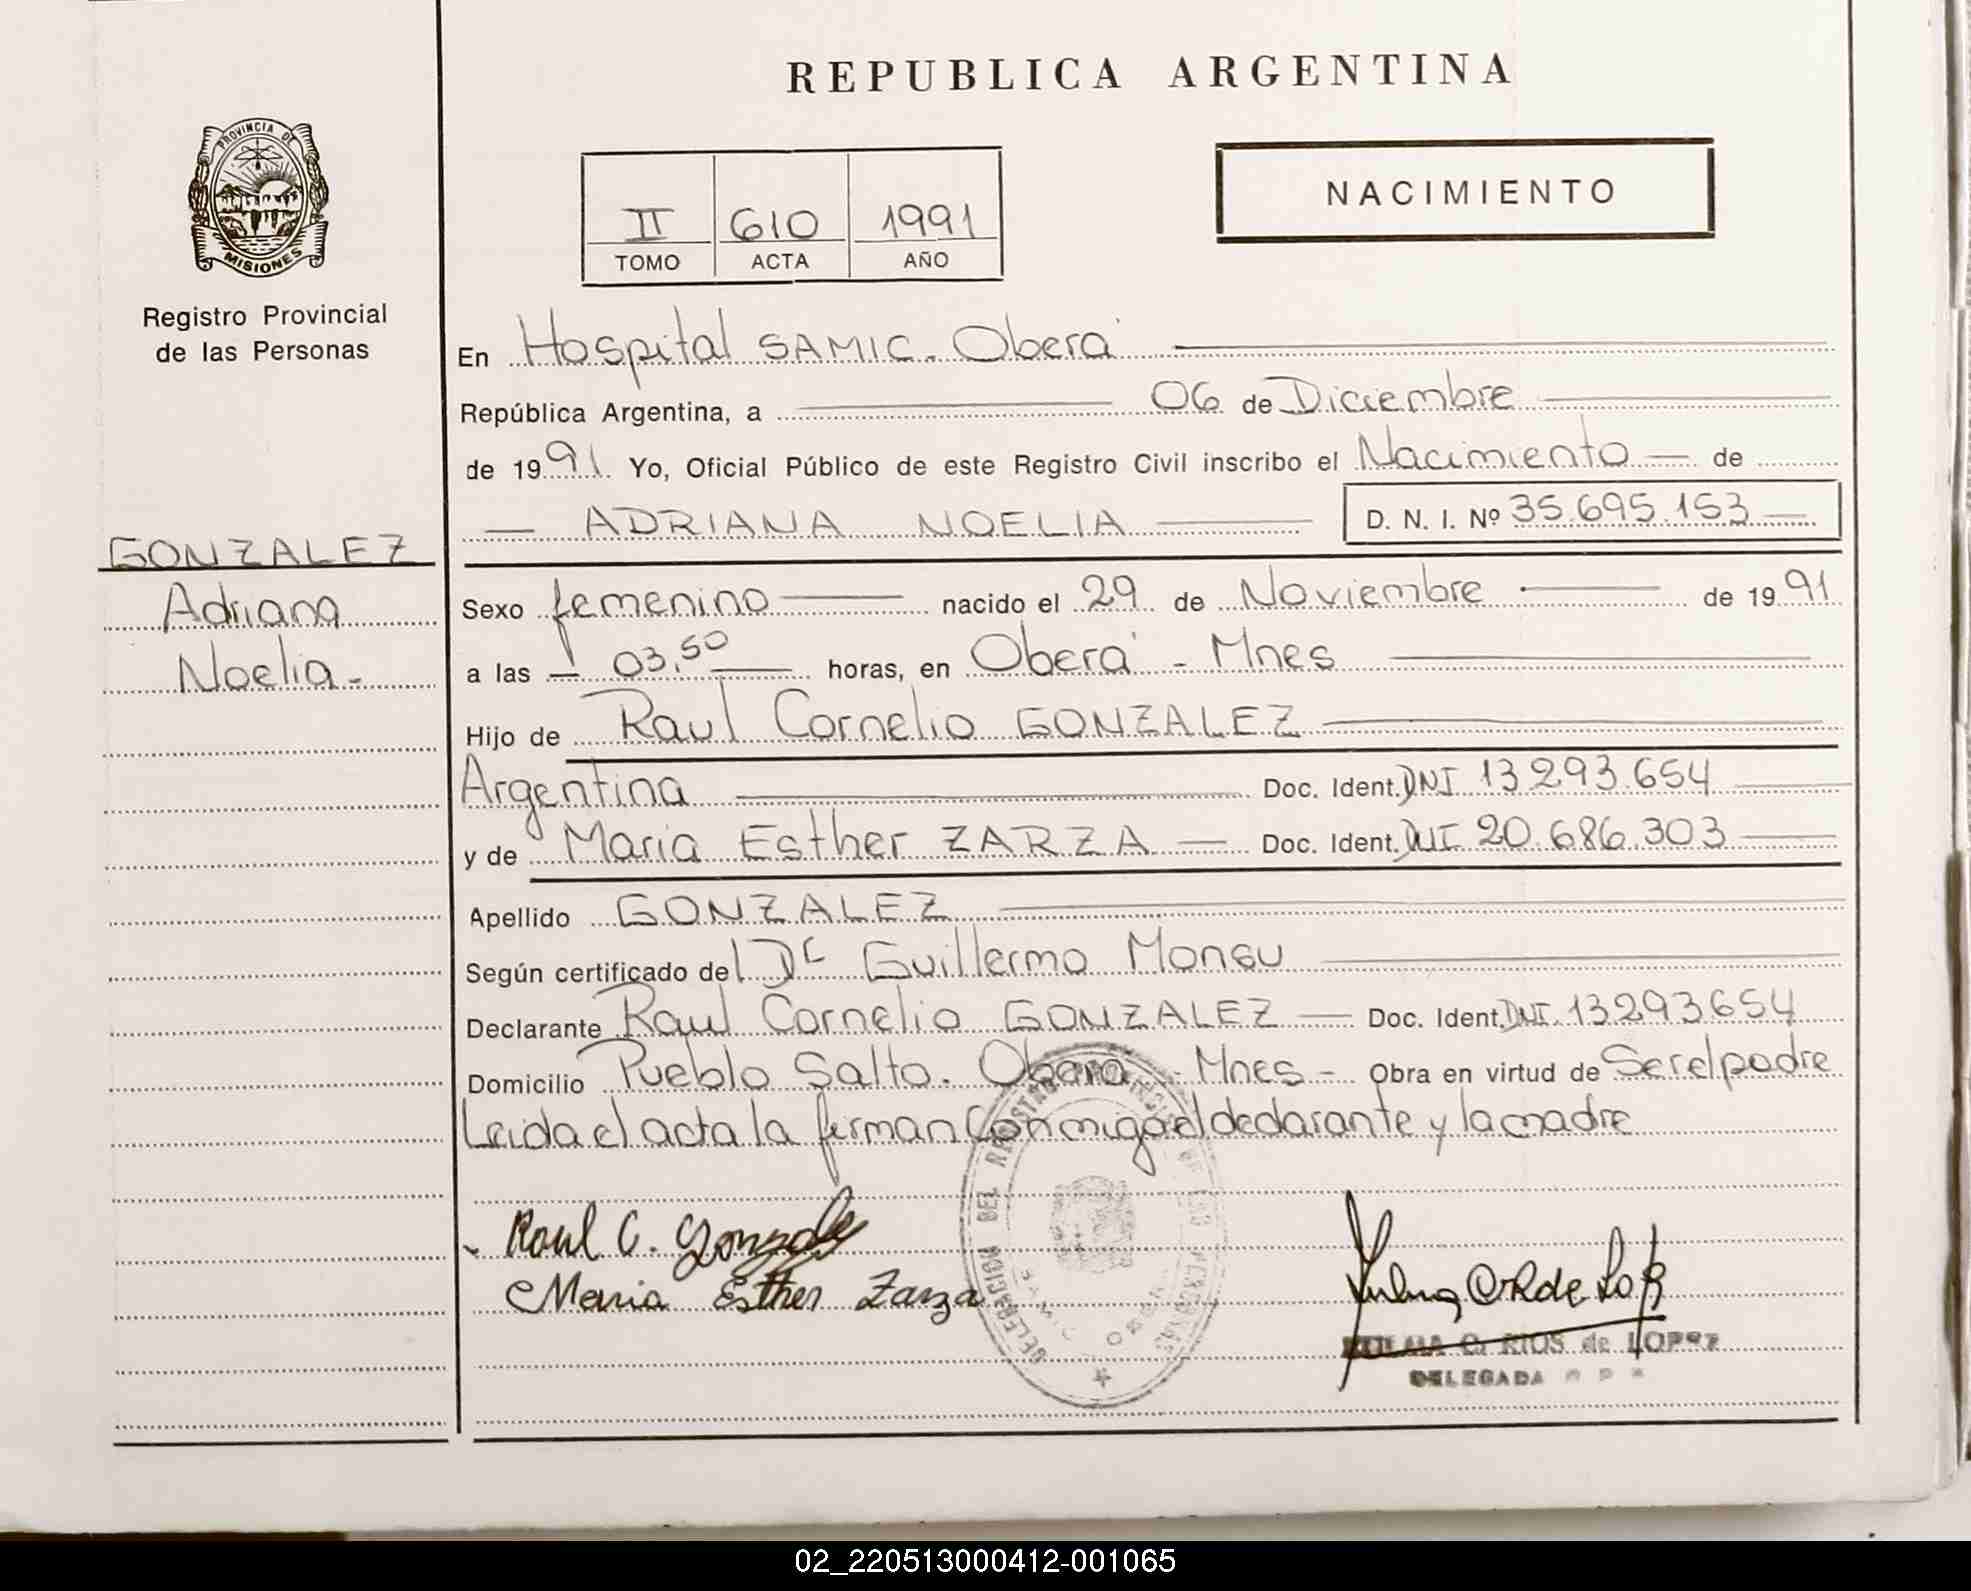 REPUBLICA ARGENTINA
PROVINCIA DE
MISIONES
Registro Provincial
de las Personas
II 610 1991
TOMO ACTA AÑO
NACIMIENTO
En Hospital SAMIC. Oberá
República Argentina, a 06 de Diciembre
de 1991. Yo, Oficial Público de este Registro Civil inscribo el Nacimiento de
ADRIANA NOELIA D. N. I. Nº 35.695.153
GONZALEZ
Adriana
Noelia.
Sexo femenino nacido el 29 de Noviembre de 1991
a las 03.50 horas, en Oberá - Mnes
Hijo de Raul Cornelio GONZALEZ
Argentina Doc. Ident. DNI 13.293.654
y de Maria Esther ZARZA Doc. Ident. DNI 20.686.303
Apellido GONZALEZ
Según certificado del Dr Guillermo Monsu
Declarante Raul Cornelio GONZALEZ Doc. Ident. DNI. 13293654
Domicilio Pueblo Salto. Oberá - Mnes - Obra en virtud de Ser el padre
Leida el acta la firman conmigo el declarante y la madre
Raul C. Gonzalez
Maria Esther Zarza
DELEGACION DEL REGISTRO
SAMIC OBERA
RIOS de LOPEZ
DELEGADA
02_220513000412-001065